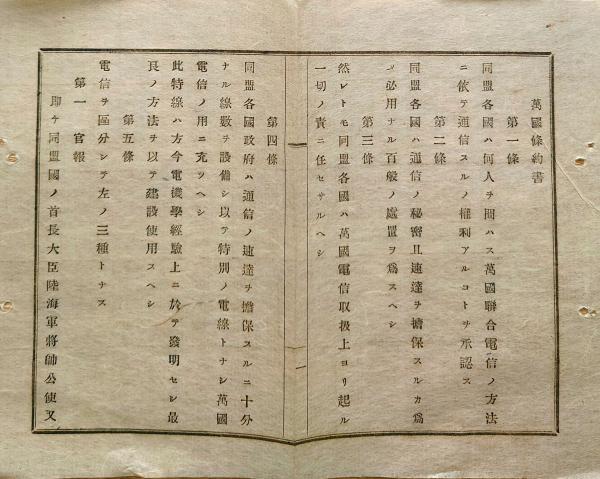 萬國條約書
第一條
同盟各國ハ何人ヲ問ハス萬國聯合電信ノ方法
ニ依テ通信スルノ權利アルコトヲ承認ス
第二條
同盟各國ハ通信ノ秘密且速達ヲ擔保スルカ爲
メ必用ナル百般ノ處置ヲ爲スヘシ
第三條
然レトモ同盟各國ハ萬國電信取扱上ヨリ起ル
一切ノ責ニ任セサルヘシ
第四條
同盟各國政府ハ通信ノ速達ヲ擔保スルニ十分
ナル線數ヲ設備シ以テ特別ノ電線トナシ萬國
電信ノ用ニ充ツヘシ
此特線ハ方今電機學經驗上ニ於テ發明セシ最
良ノ方法ヲ以テ建設使用スヘシ
第五條
電信ヲ區分シテ左ノ三種トナス
第一 官報
即チ同盟國ノ首長大臣陸海軍將帥公使又